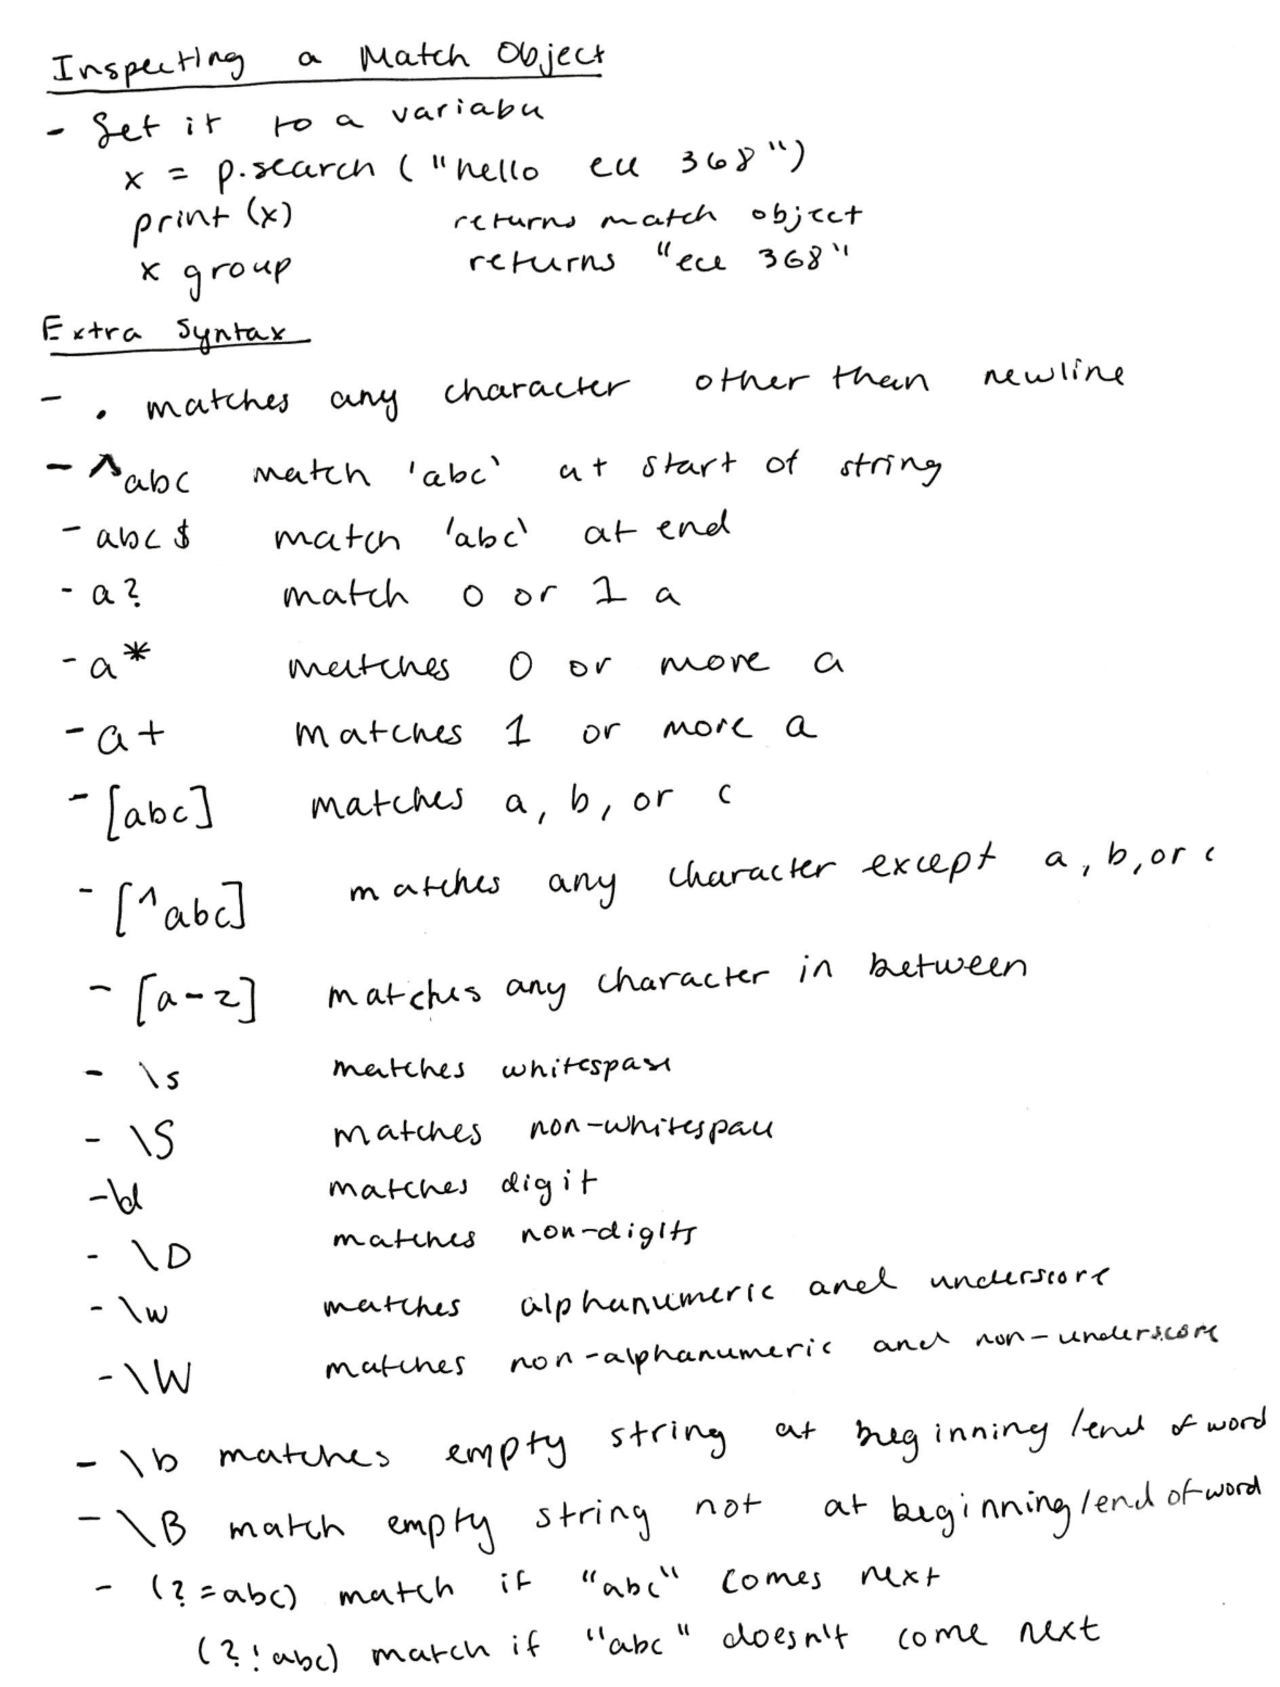 Inspecting a Match Object
- Set it to a variable
x = p.search ("hello ece 368")
print (x) returns match object
x group returns "ece 368"
Extra Syntax
- . matches any character other than newline
- ^abc match 'abc' at start of string
- abc$ match 'abc' at end
- a? match 0 or 1 a
- a* matches 0 or more a
- a+ matches 1 or more a
- [abc] matches a, b, or c
- [^abc] matches any character except a, b, or c
- [a-z] matches any character in between
- \s matches whitespace
- \S matches non-whitespace
- \d matches digit
- \D matches non-digits
- \w matches alphanumeric and underscore
- \W matches non-alphanumeric and non-underscore
- \b matches empty string at beginning/end of word
- \B match empty string not at beginning/end of word
- (?=abc) match if "abc" comes next
(?!abc) match if "abc" doesn't come next